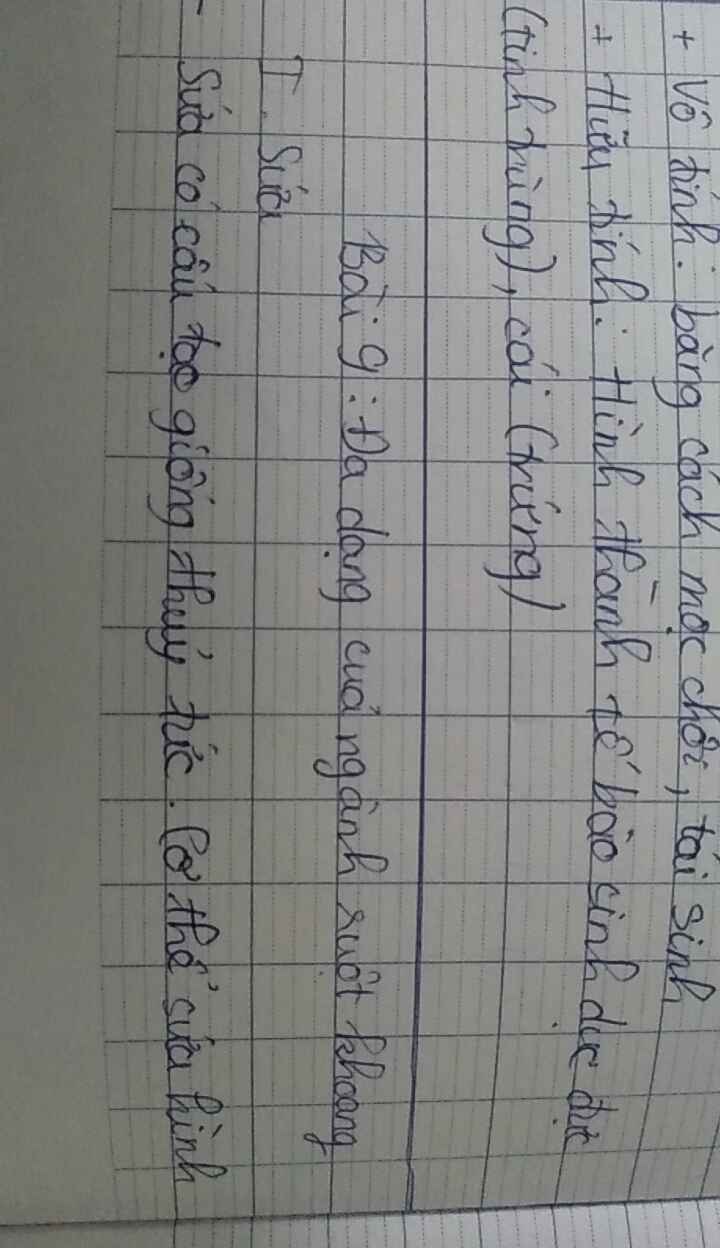 + Vô tính: bằng cách mọc chồi, tái sinh
+ Hữu tính: Hình thành tế bào sinh dục đực
(tinh trùng), cái (trứng)
Bài 9: Đa dạng của ngành ruột khoang
I. Sứa
- Sứa có cấu tạo giống thuỷ tức. Cơ thể sứa hình